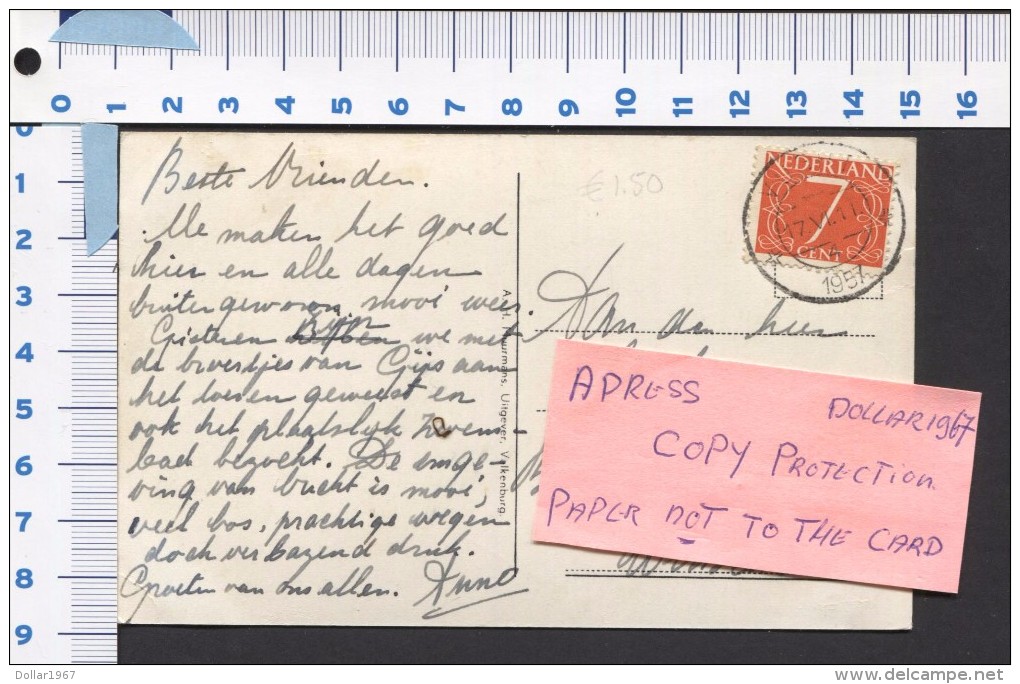 0 1 2 3 4 5 6 7 8 9 10 11 12 13 14 15 16
0
1
2
3
4
5
6
7
8
9
Beste Vrienden.
We maken het goed
hier en alle dagen
buitengewoon mooi weer.
Gisteren zijn we met
de broertjes van Gijs aan
het geweest en
ook het plaatselijk Zwem-
bad bezocht. De omge-
ving van is mooi,
veel bos, prachtige wegen
doch verbazend druk.
Groeten van ons allen.
Uitgever, Valkenburg.
€ 1.50
NEDERLAND
7
CENT
1957
Aan den heer
ADRESS
DOLLAR1967
COPY PROTECTION
PAPER NOT TO THE CARD
Dollar1967
delcampe.net